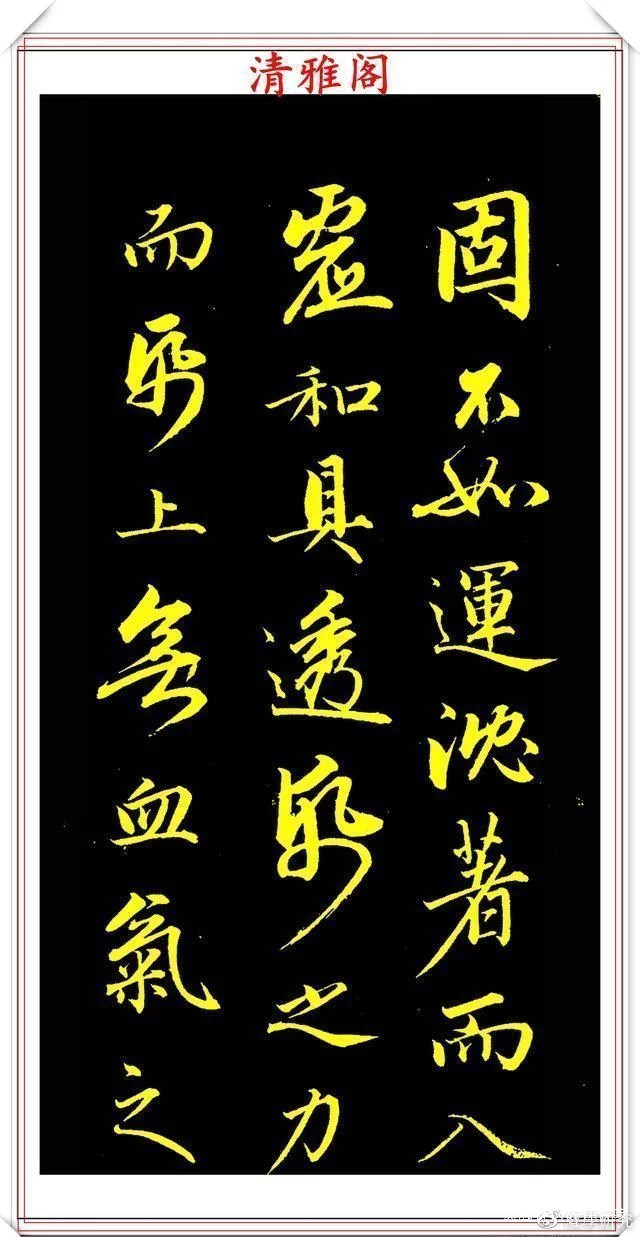 清雅阁
固不如運沈著而入
虛和具透帋之力
而帋上無血氣之